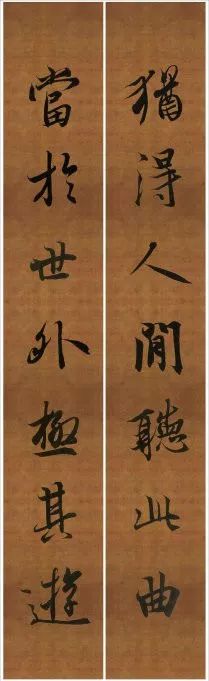 猶得人閒聽此曲
當於世外極其遊